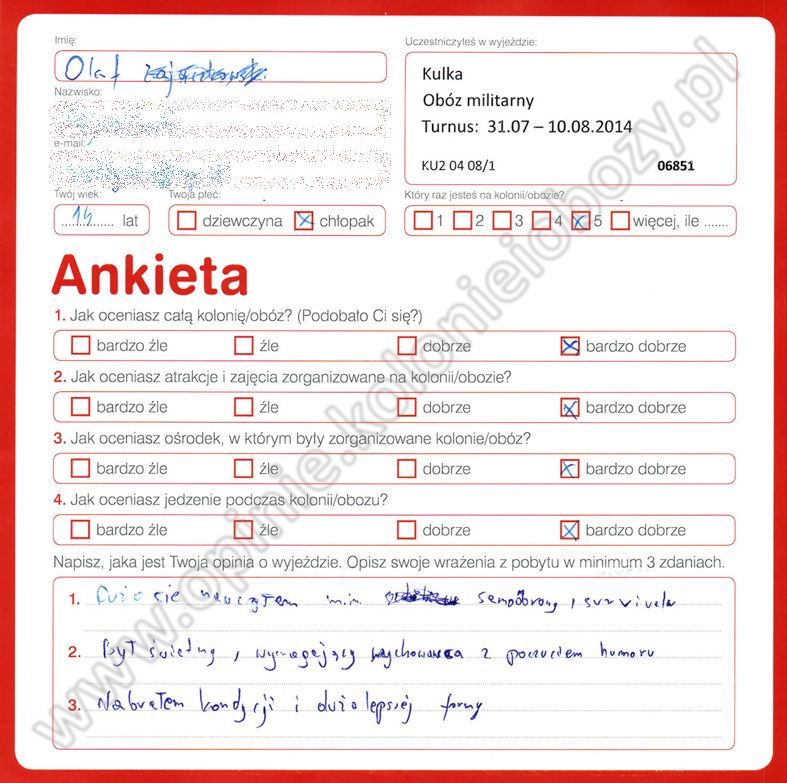 Imię:
Olaf
Uczestniczyłeś w wyjeździe:
Kulka
Obóz militarny
Turnus: 31.07 – 10.08.2014
KU2 04 08/1 06851
Nazwisko:
e-mail:
Twój wiek:
14 lat
Twoja płeć:
dziewczyna chłopak
Który raz jesteś na kolonii/obozie?
1 2 3 4 5 więcej, ile .......
Ankieta
1. Jak oceniasz całą kolonię/obóz? (Podobało Ci się?)
bardzo źle źle dobrze bardzo dobrze
2. Jak oceniasz atrakcje i zajęcia zorganizowane na kolonii/obozie?
bardzo źle źle dobrze bardzo dobrze
3. Jak oceniasz ośrodek, w którym były zorganizowane kolonie/obóz?
bardzo źle źle dobrze bardzo dobrze
4. Jak oceniasz jedzenie podczas kolonii/obozu?
bardzo źle źle dobrze bardzo dobrze
Napisz, jaka jest Twoja opinia o wyjeździe. Opisz swoje wrażenia z pobytu w minimum 3 zdaniach.
1. Dużo się nauczyłem m.in samoobrony, survivalu
2. Był świetny, wymagający wychowawca z poczuciem humoru
3. Nabrałem kondycji i dużo lepszej formy
www.opinie.kolonieiobozy.pl